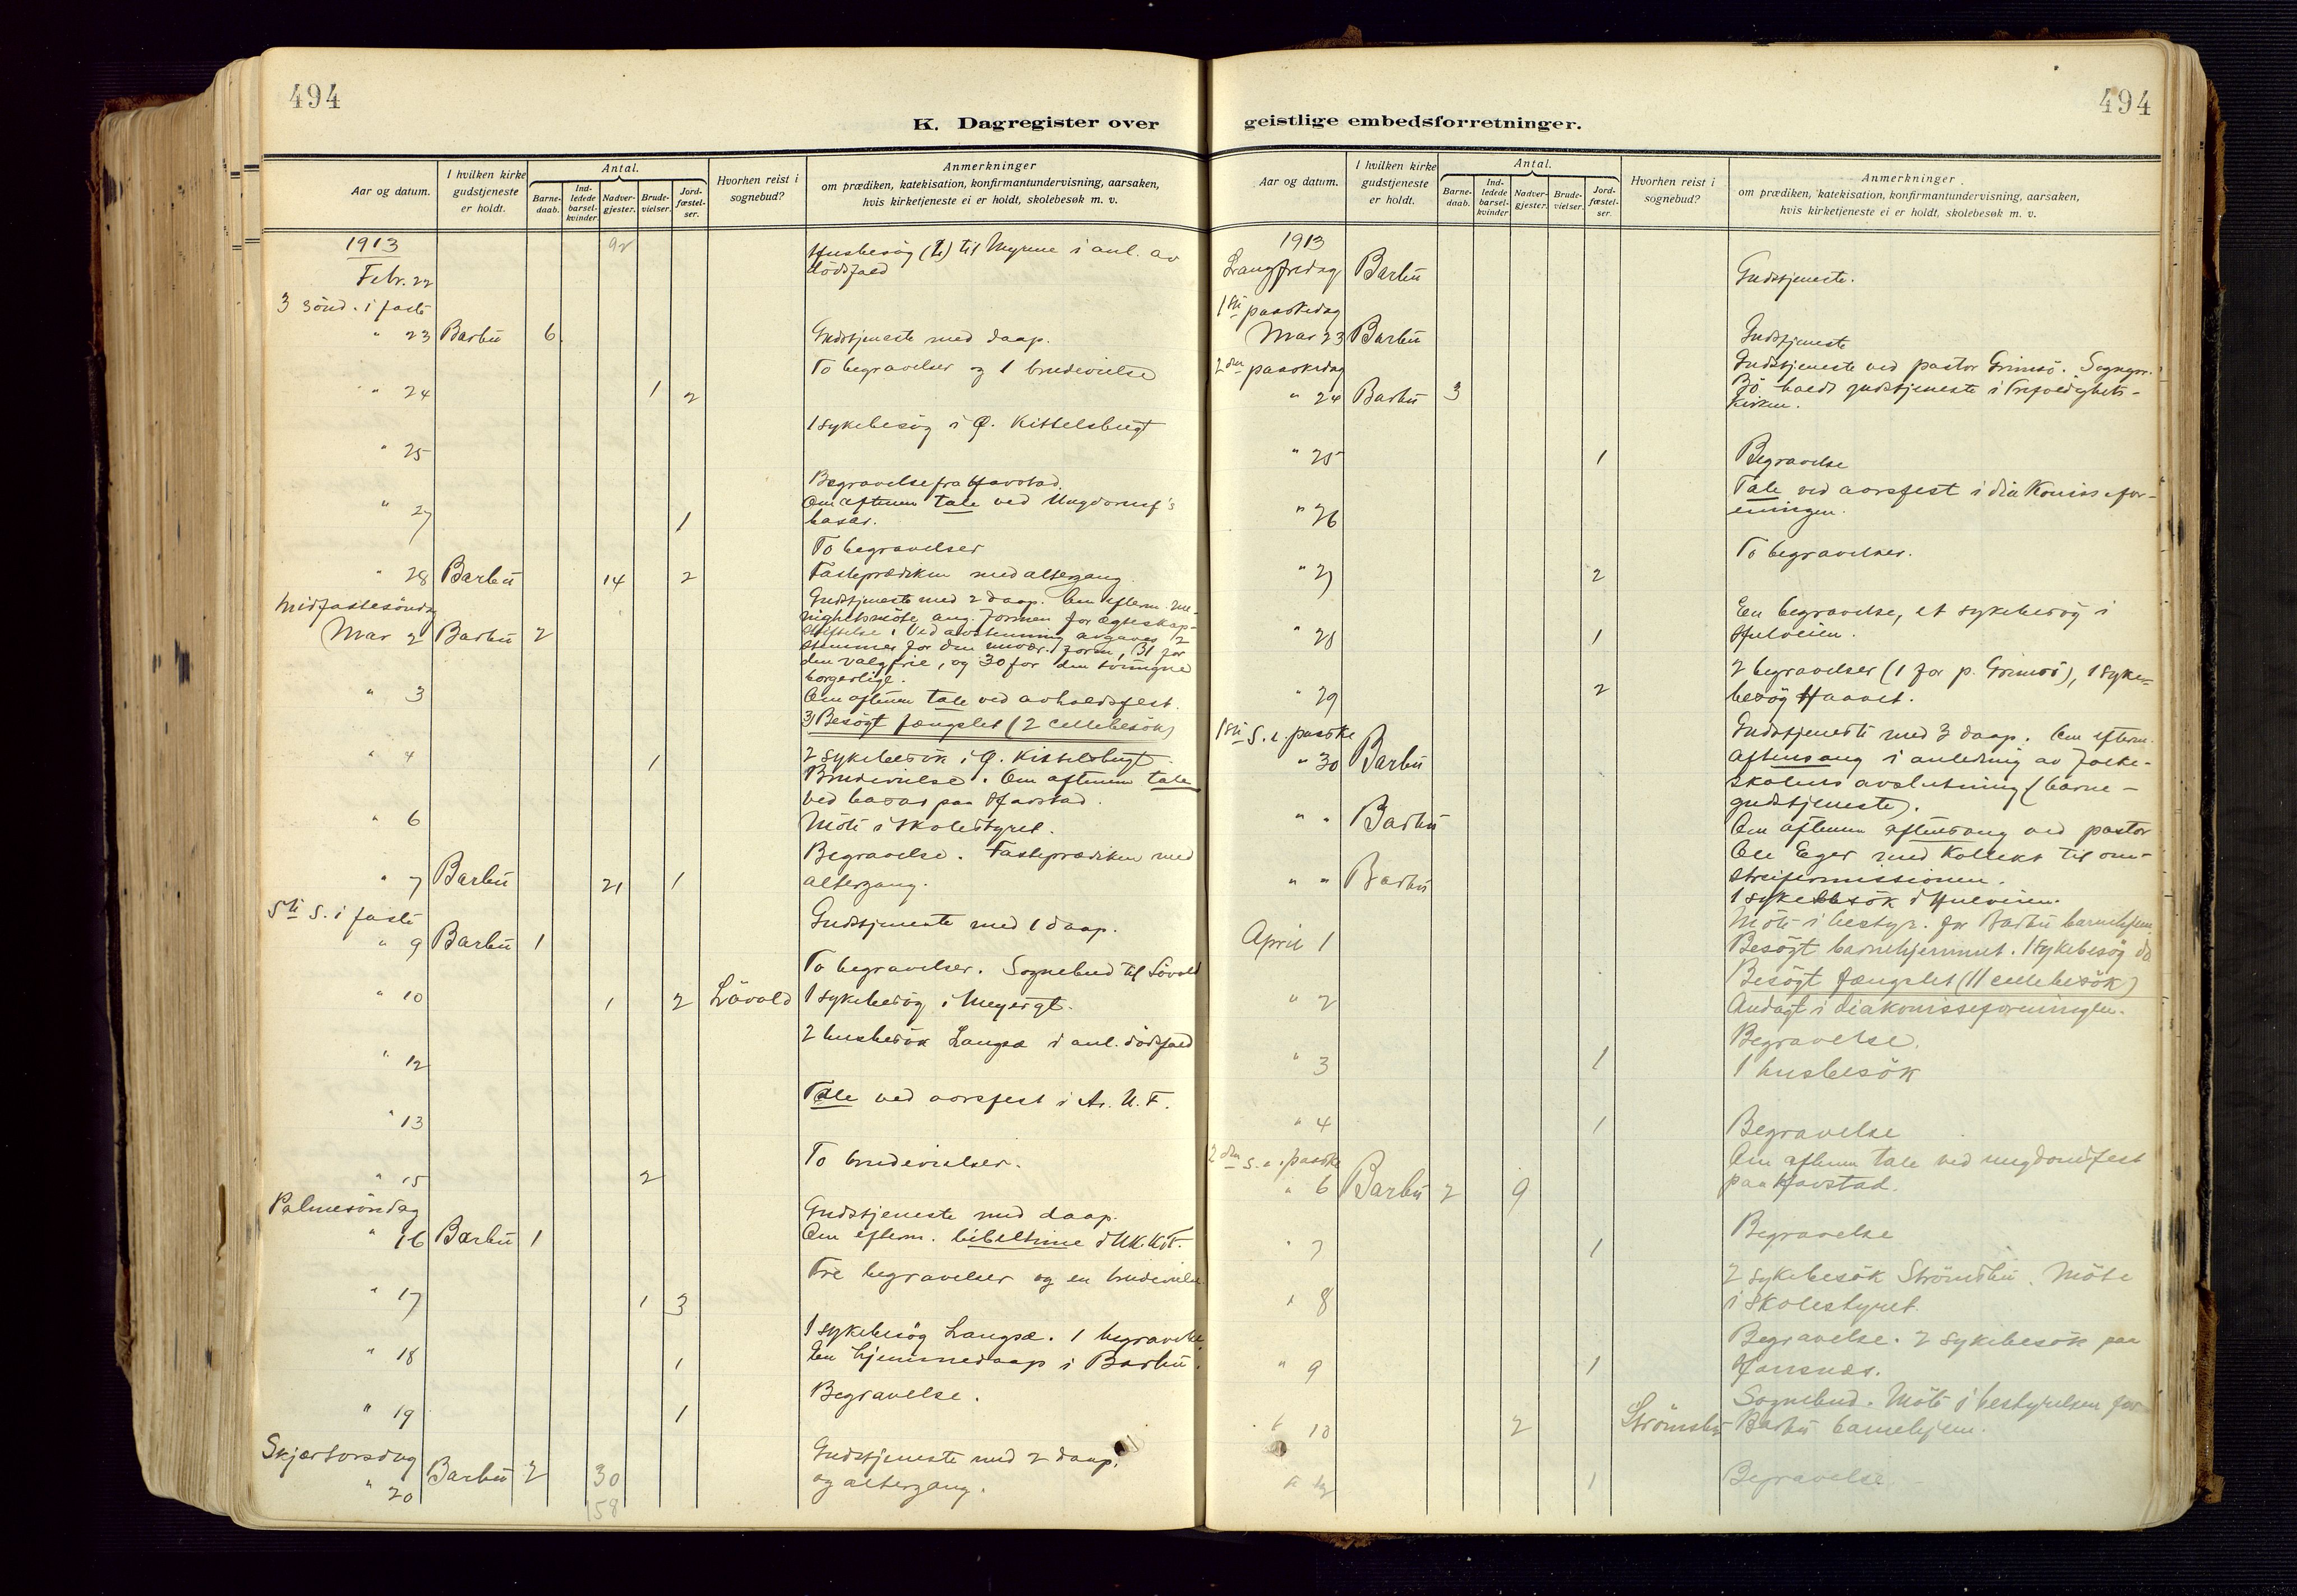 494
K. Dagregister over
Aar og datum.
I hvilken kirke gudstjeneste er holdt.
Antal.
Barne-daab.
Ind-ledede barsel-kvinder.
Nadver-gjester.
Brude-vielser.
Jord-fæstel-ser.
Hvorhen reist i sognebud?
Anmerkninger
om prædiken, katekisation, konfirmantundervisning, aarsaken,
hvis kirketjeneste ei er holdt, skolebesøk m. v.
1913 92
Febr. 22 Husbesøg (2) til Myrene i anl. av
dödsfald
3 sönd. i faste
" 23 Barbu 6 Gudstjeneste med daap.
" 24 1 2 To begravelser og 1 brudevielse
" 25 1 sykebesøg i Ø. Kittelsbugt
" 27 1 Begravelse fra Havstad.
Om aftenen tale ved Ungdomsf's
basar.
To begravelser
" 28 Barbu 14 2 Fasteprædiken med altergang.
Midfastesöndag
Mar 2 Barbu 2 Gudstjeneste med 2 daap. Om efterm. me-
nighetsmöte ang. formen for ægteskap-
stiftelse. Ved avstemning avgaves 2
stemmer for den nuvær. form, 31 for
den valgfrie, og 30 for den tvungne
borgerlige.
" 3 Om aftenen tale ved avholdsfest.
3) Besøgt fængslet (2 cellebesök)
" 4 1 2 sykebesök i Ø. Kittelsbugt.
Brudevielse. Om aftenen tale
ved basar paa Havstad.
" 6 Möte i skolestyret.
" 7 Barbu 21 1 Begravelse. Fasteprædiken med
altergang.
5te s. i faste
" 9 Barbu 1 Gudstjeneste med 1 daap.
To begravelser. Sognebud til Lövold
" 10 1 2 Lövold 1 sykebesøg i Meyersgt.
" 12 2 husbesök Langsæ i anl. dödsfald
" 13 Tale ved aarsfest i Ar. U. F.
" 15 2 To brudevielser.
Palmesöndag
" 16 Barbu 1 Gudstjeneste med daap.
Om efterm. bibeltime i
" 17 1 3 Tre begravelser og en brudevielse
" 18 1 1 sykebesøg Langsæ. 1 begravelse
En hjemmedaap i Barbu.
" 19 1 Begravelse.
Skjærtorsdag
" 20 Barbu 2 30 Gudstjeneste med 2 daap.
og altergang.
158
494
geistlige embedsforretninger.
Aar og datum.
I hvilken kirke gudstjeneste er holdt.
Antal.
Barne-daab.
Ind-ledede barsel-kvinder.
Nadver-gjester.
Brude-vielser.
Jord-fæstel-ser.
Hvorhen reist i sognebud?
Anmerkninger
om prædiken, katekisation, konfirmantundervisning, aarsaken,
hvis kirketjeneste ei er holdt, skolebesøk m. v.
1913
Langfredag Barbu Gudstjeneste.
1ste paaskedag
Mar 23 Barbu Gudstjeneste
2den paaskedag
" 24 Barbu 3 Gudstjeneste ved pastor Grimsö. Sognepr.
Bö holdt gudstjeneste i Trefoldighets-
kirken.
" 25 1 Begravelse
" 26 Tale ved aarsfest i diakonissefor-
eningen.
" 27 2 To begravelser.
" 28 1 En begravelse, et sykebesøg i
Hulveien.
" 29 2 2 begravelser (1 for p. Grimsö), 1 syke-
besøg Haavet.
1ste s. e. paaske
" 30 Barbu Gudstjeneste med 3 daap. Om efterm.
aftensang i anledning av folke-
skolens avslutning (barne-
gudstjeneste).
" " Barbu Om aftenen aftensang ved pastor
Ole Eger med kollekt til om-
streifermissionen.
" " Barbu 1 sykebesök i Hulveien.
April 1 Möte i bestyr. for Barbu barnehjem
Besøgt barnehjemmet. 1 sykebesøg
Besøgt fængslet (11 cellebesök)
" 2 Andagt i diakonisseforeningen.
" 3 1 Begravelse.
1 husbesök
" 4 1 Begravelse
2den s. e. paaske
" 6 Barbu 2 9 Om aftenen tale ved ungdomsfest
paa Havstad.
" 7 1 Begravelse
" 8 2 sykebesök Strömsbu. Möte
i skolestyret.
" 9 1 Begravelse. 2 sykebesök paa

" 10 2 Strömsbu Sognebud. Möte i bestyrelsen for
Barbu barnehjem.
" 12 1 Begravelse